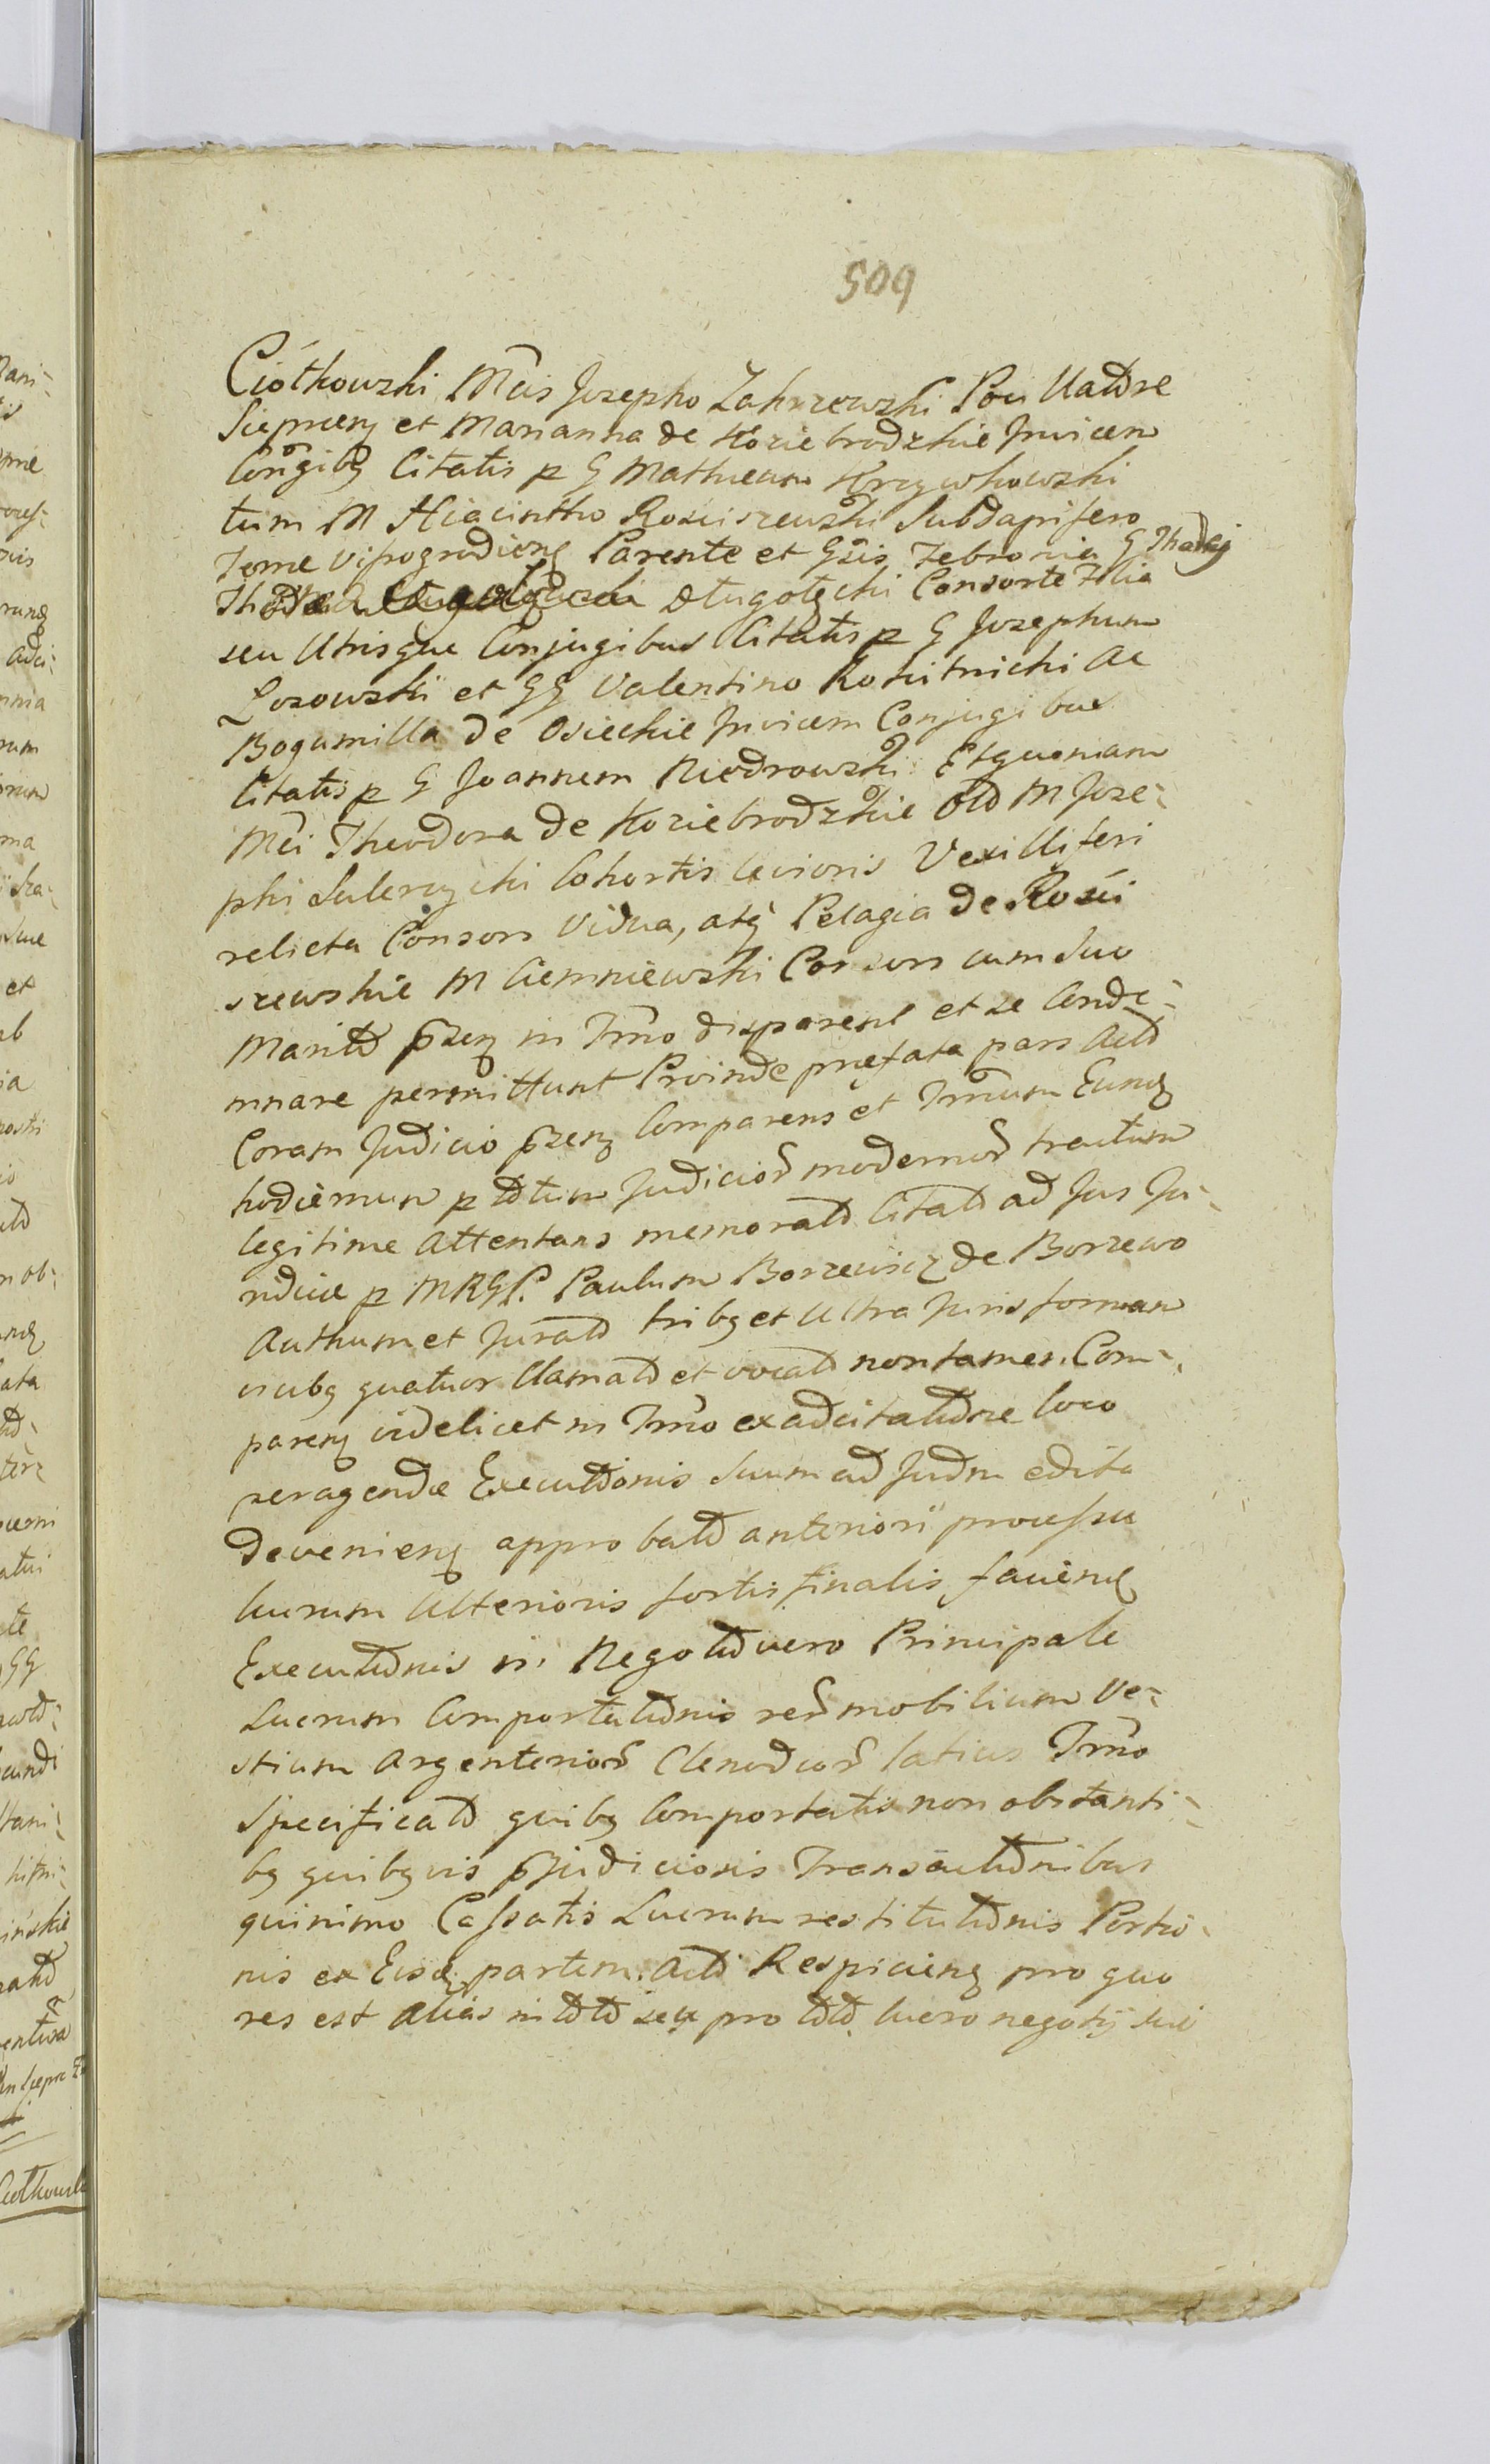 509
Ciółkowski Mcis Josepho Zakrzewski Poci
Siepreen et Marianna de Koziebrodzkie Invicem
Congibg Citatis p G Mathaeum Krzywkowski
tum M Hiacintho Rosciszewski Subdapifero
Terrae Viszogradien Parente et Gsis Zebronia G Thadaej
Długołęcki Consorte Filia
seu Utrisque Conjugibus Citatis p G Josephum
Łosowski et GG Valentino Rokitnicki Ac
Bogumilla de Osieckie Invicem Conjugibus
Citatis p G Joannem Niedrowski Etquoniam
Mci Theodora de Koziebrodzkie Old M Joze-
phi Sulerzycki Cohortis levioris Vexilliferi
relicta Consors Vidua, atq Pelagia de Rosci
szewskie M Ciemniewski Consors cum Suo
Marito przen in Trno disparent et se Conde-
mnare permittunt Proinde praefata pars Actō
Coram Judicio przen Comparens et Trnum Eund
hodiernum p Judicior modernor tractum
legitime Attentans memoratō Citatō ad Jus Ju-
ridice p MRGP. Paulum Borzewicz de Borzewo
Authum et Juratō tribg et Ultra Juris formam
vicibg quatuor Clamatō et vocatō non tamen Com-
paren videlicet in Trno ex adcitatōne loco
peragendae Executōonis Suum ad Judm edito
devenien approbatō anteriori processu
lucrum Ulterioris fortis finalis faciend
Executōnis in Negotō vero Principale
Lucrum Comportatōnis rer mobilium Ve-
stium Argenterior Clenodior latius Trno
Specificatō quibg Comportatis non obstanti-
bg quibgvis przjudiciosis Transactōnibus
quinimo Cassatis Lucrum restitutōnis Portio-
nis ex Eisd partem Actō Respicien pro quo
res est alias in seu pro lucro negotij sui